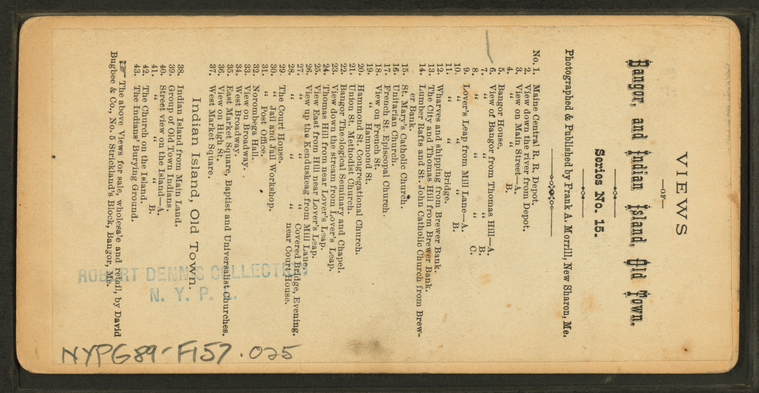 VIEWS
—OF—
Bangor, and Indian Island, Old Town.
Series NO. 15.
Photographed & Published by Frank A. Morrill, New Sharon, Me.
No. 1. Maine Central R. R. Depot.
2. View down the river from Depot.
3. View on Main Street—A.
4. " " " " B.
5. Bangor House.
6. View of Bangor from Thomas Hill—A.
7. " " " " " B.
8. " " " " " C.
9. Lover's Leap from Mill Lane—A.
10. " " " " " B.
11. " " " Bridge.
12. Wharves and shipping from Brewer Bank.
13. The City and Thomas Hill from Brewer Bank.
14. Lumber Rafts and St. John Catholic Church from Brew-
er Bank.
15. St. Mary's Catholic Church.
16. Unitarian Church.
17. French St. Episcopal Church.
18. View on French St.
19. " " Hammond St.
20. Hammond St. Congregational Church.
21. Union St. Methodist Church.
22. Bangor Theological Seminary and Chapel.
23. View down the stream from Lover's Leap.
24. Thomas Hill from near Lover's Leap.
25. View East from Hill near Lover's Leap.
26. View up the Kenduskeag from Mill Lane.
27. " " " " Covered Bridge, Evening.
28. " " " " near Court House.
29. The Court House.
30. " Jail and Jail Workshop.
31. " Post Office.
32. Norombega Hall.
33. View on Broadway.
34. West Broadway.
35. East Market Square, Baptist and Universalist Churches.
36. View on High St.
37. West Market Square.
Indian Island, Old Town.
38. Indian Island from Main Land.
39. Group of Old Town Indians.
40. Street view on the Island—A.
41. " " " " B.
42. The Church on the Island.
43. The Indians' Burying Ground.
☞ The above Views for sale, wholesale and retail, by David
Bugbee & Co., No. 5 Strickland's Block, Bangor, Me.
ROBERT DENNIS COLLECTION
N. Y. P. L.
NYPG89-F157.025